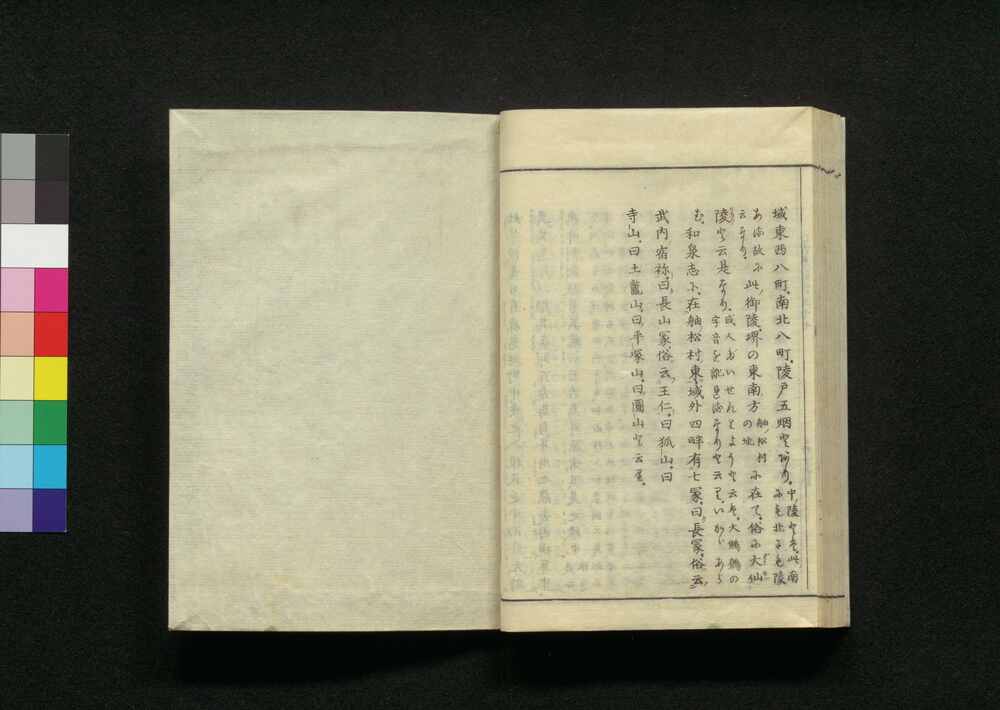 城東西八町。南北八町。陵戸五烟とあり。中ノ陵とは、此南にも北にも陵
ある故に此ノ御陵堺の東南方舳ノ松村の地に在て。俗に大仙
云なり。
陵と云是なり。或人だいせんとよめりと云は。大鷦鷯の字音を訛れるなりと云り。いかゞあらむ
和泉志に、在舳松村東。域外四畔有七冢。曰長冢。俗云
武内宿祢。曰長山冢。俗云王仁。曰狐山。曰
寺山。曰土龍山。曰平塚山。曰圖山と云り。